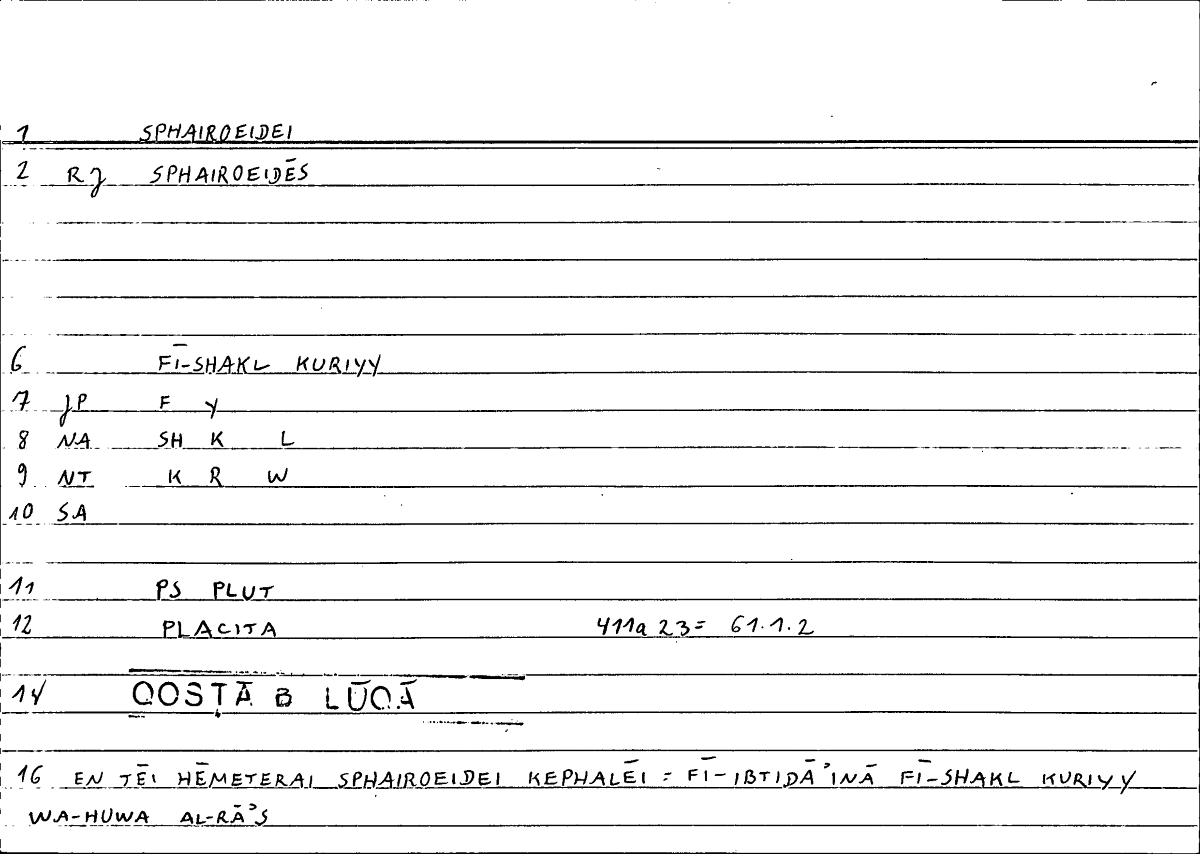 1 SPHAIROEIDEI
2 RJ SPHAIROEIDĒS
6 FĪ-SHAKL KURIYY
7 JP F Y
8 NA SH K L
9 NT K R W
10 SA
11 PS PLUT
12 PLACITA 411a 23 = 61.1.2
14 QOSṬĀ B LŪQĀ
16 EN TĒI HĒMETERAI SPHAIROEIDEI KEPHALĒI = FĪ-IBTIDĀʾINĀ FĪ-SHAKL KURIYY
WA-HUWA AL-RĀʾS